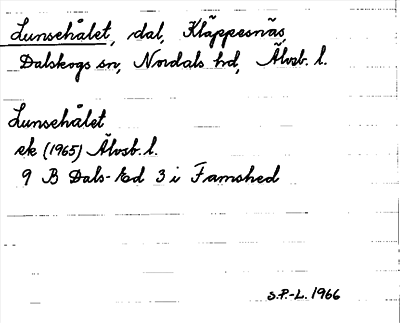 Lunsehålet, dal, Kläppesnäs,
Dalskogs sn, Nordals hd, Älvsb. l.
Lunsehålet
ek (1965) Älvsb. l.
9 B Dals-Ed 3 i Famshed
S.P.-L. 1966